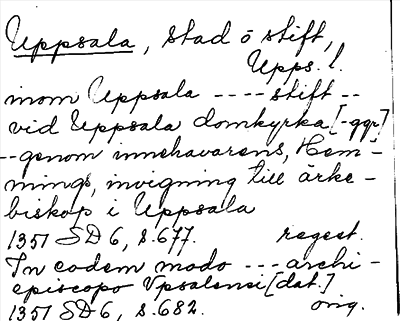 Uppsala, stad o stift,
Upps. l.
inom Uppsala ---- stift --
vid Uppsala domkyrka [-ggr]
-- genom innehavarens, Hem-
mings, invigning till ärke-
biskop i Uppsala
1351 SD 6, s. 677. regest.
In eodem modo --- archi-
episcopo Vpsalensi [dat.]
1351 SD 6, s. 682. orig.